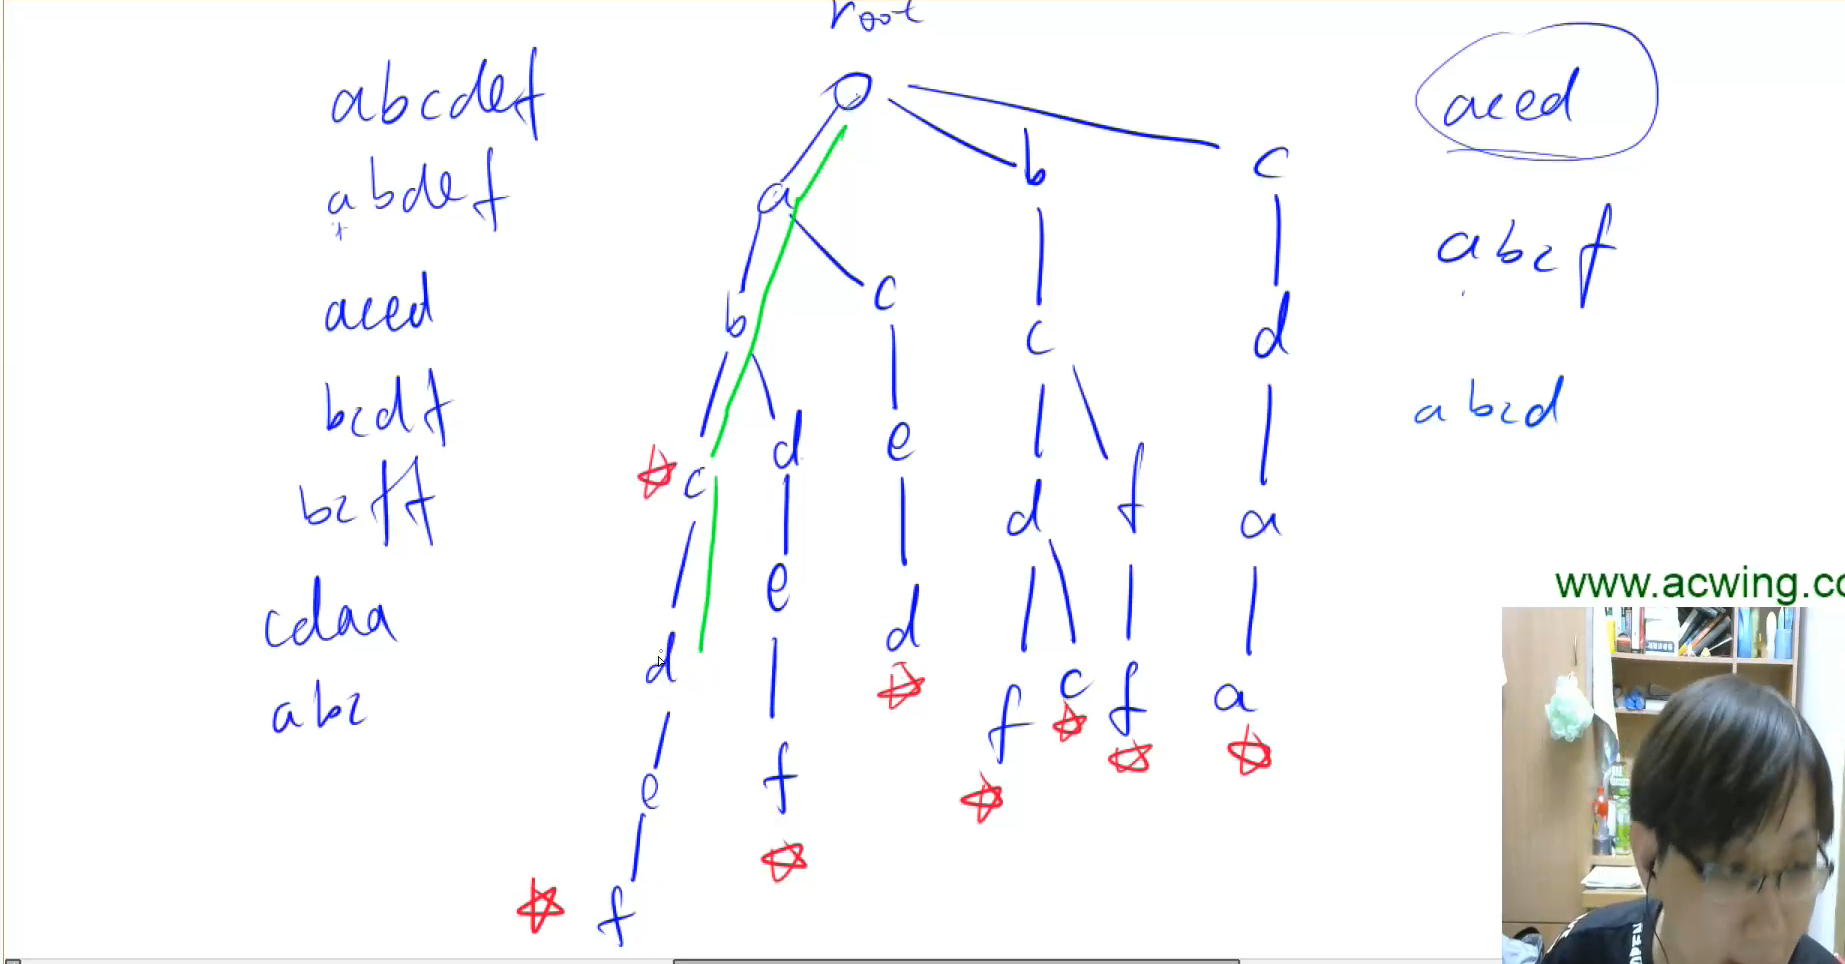 root
abcdef
abdef
aced
bcdf
bcff
cdaa
abc
a b c
b c d
c d e c a
d e d d f a
e f f c f a
f
aced
abcf
abcd
www.acwing.co